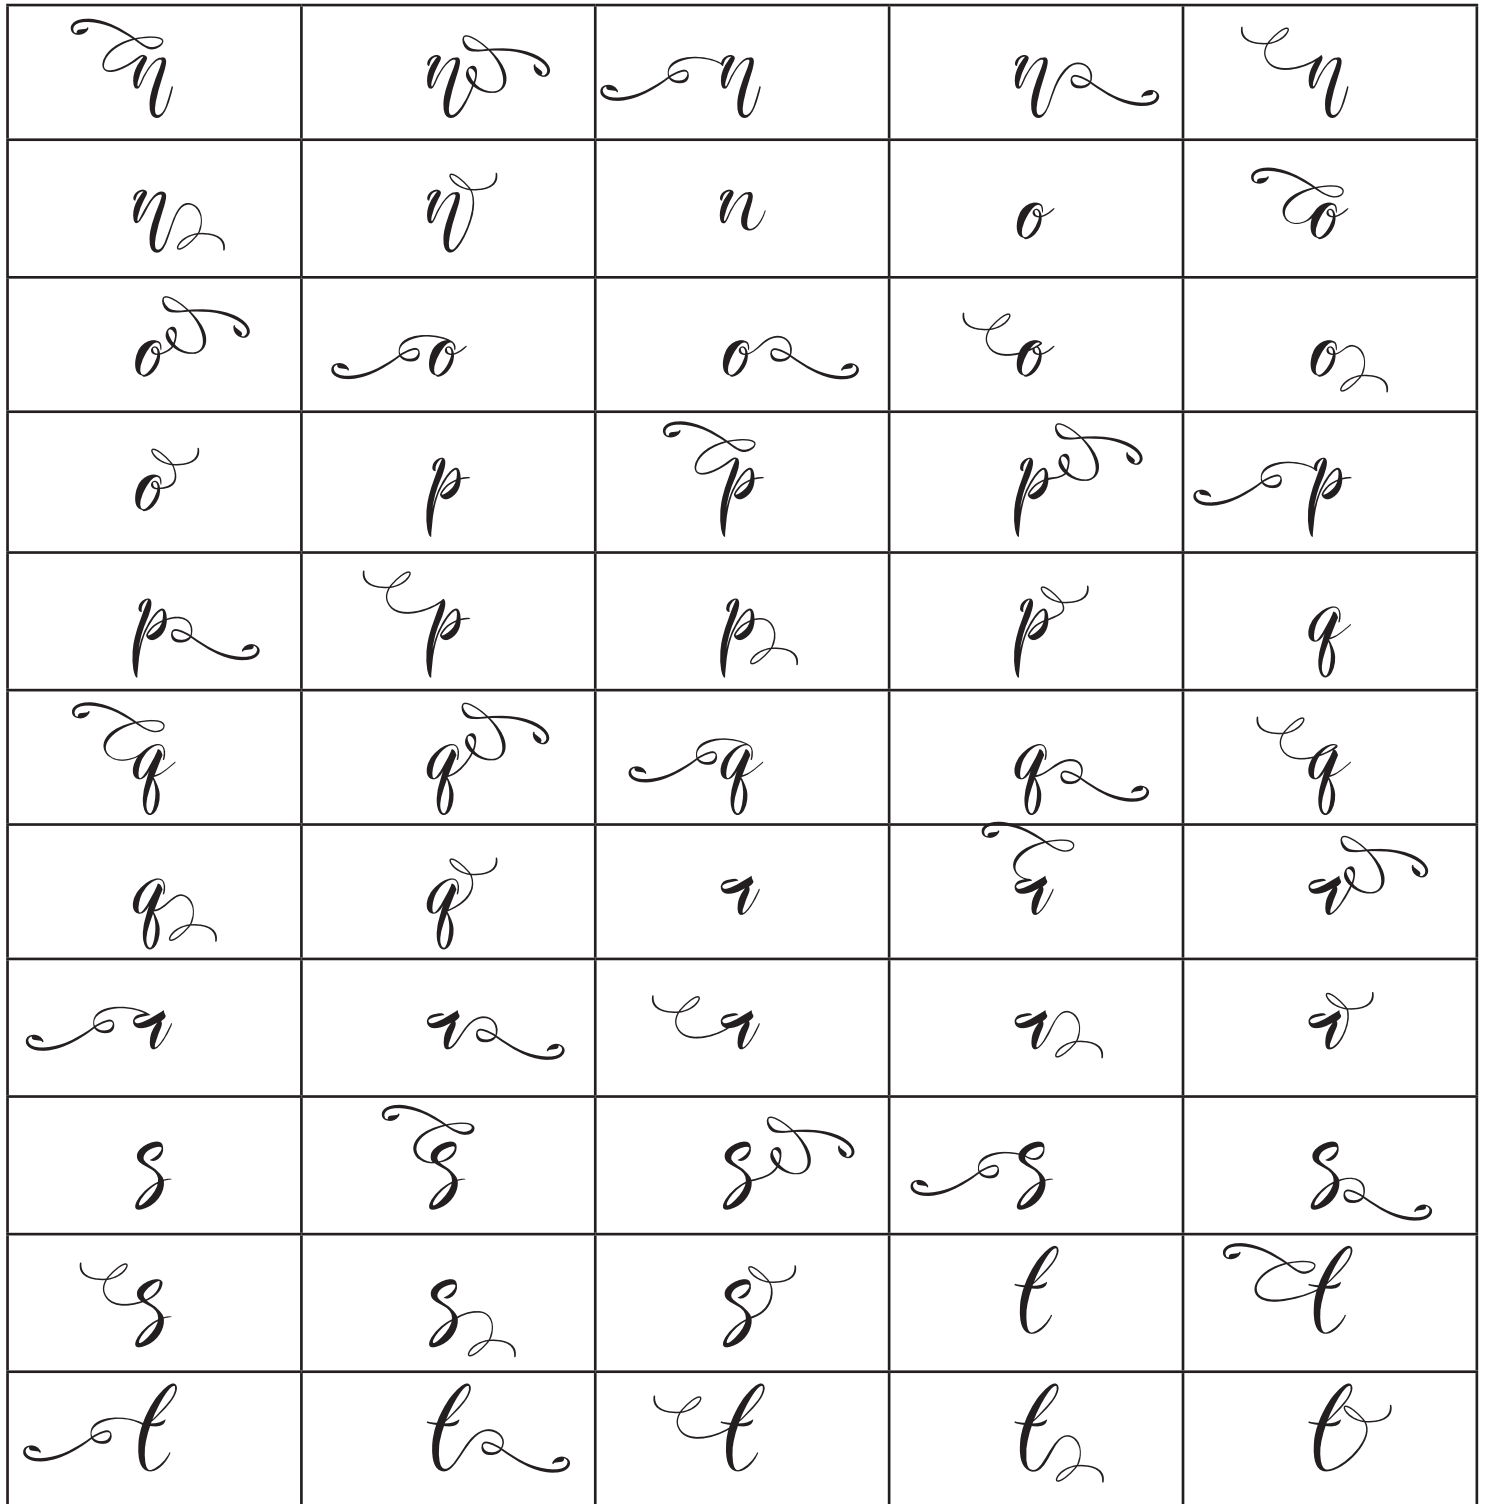 n n n n n
n n n o o
o o o o o
o p p p p
p p p p q
q q q q q
q q r r r
r r r r r
s s s s s
s s s t t
t t t t t